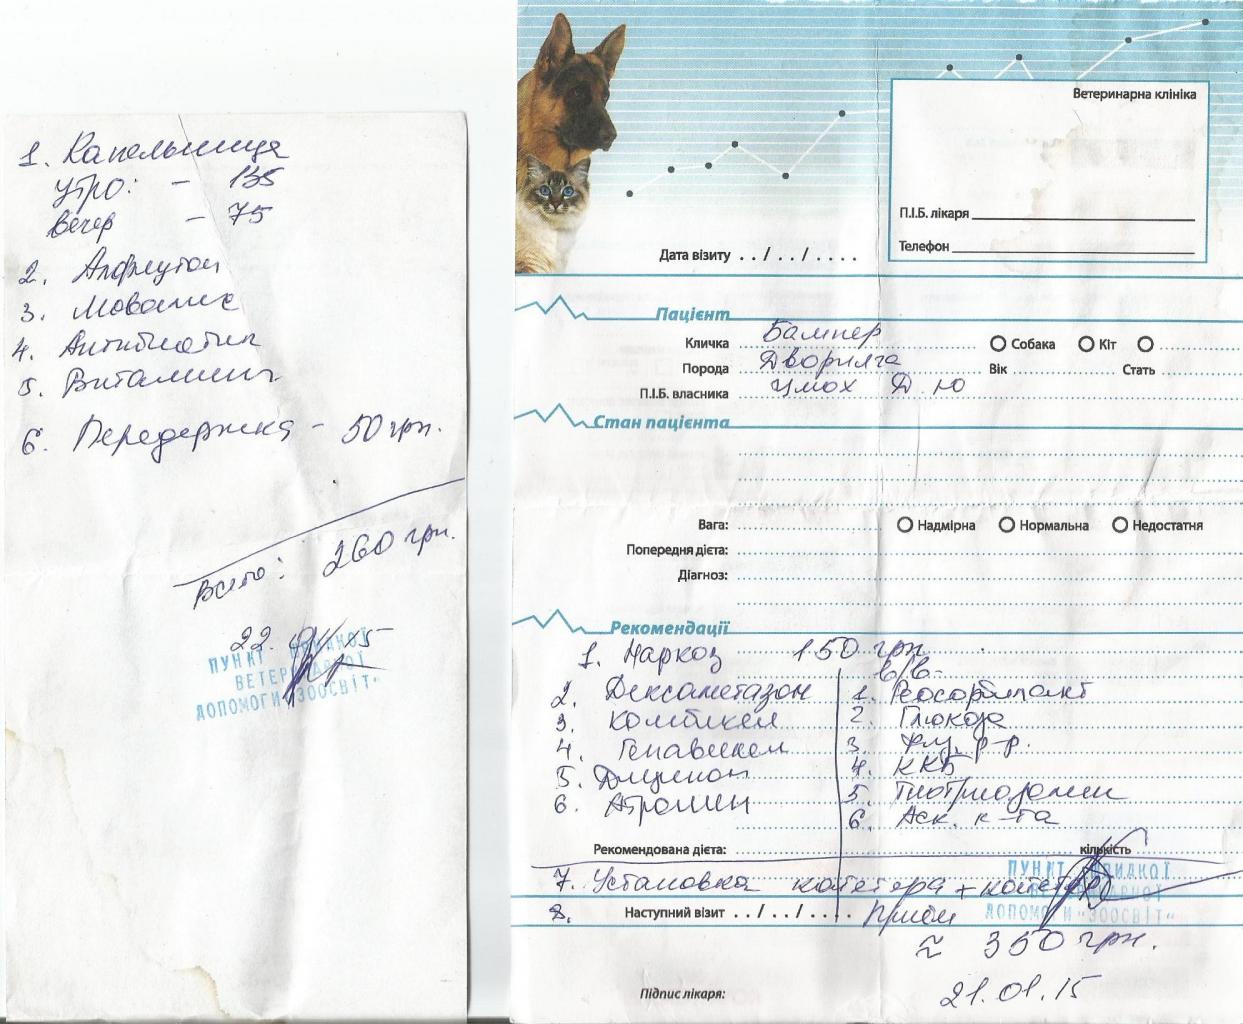 1. Капельница
утро: - 135
вечер - 75
2.
3.
4. Антибиотик
5. Витамины
6. Передержка - 50 грн.
Всего: 260 грн.
22.
ПУНКТ ШВИДКОЇ
ВЕТЕРИНАРНОЇ
ДОПОМОГИ "ЗООСВІТ"
Ветеринарна клініка
П.І.Б. лікаря
Телефон
Дата візиту . . / . . / . . . .
Пацієнт
Кличка Бампер Собака Кіт
Порода Дворняга Вік Стать
П.І.Б. власника Цмох Д.Ю
Стан пацієнта
Вага: Надмірна Нормальна Недостатня
Попередня дієта:
Діагноз:
Рекомендації
1. Наркоз 150 грн.
в/в-
2. Дексаметазон 1. Реосорбилакт
3. 2. Глюкоза
4. 3. р-р.
5. Дицинон 4. ККБ
6. Атропин 5. Тиотриазолин
6. Аск. к-та
Рекомендована дієта: кількість
7. Установка катетера + катетер
ПУНКТ ШВИДКОЇ
ВЕТЕРИНАРНОЇ
ДОПОМОГИ "ЗООСВІТ"
8. Наступний візит . . / . . / . . . . Приём
≈ 350 грн.
Підпис лікаря: 21.01.15